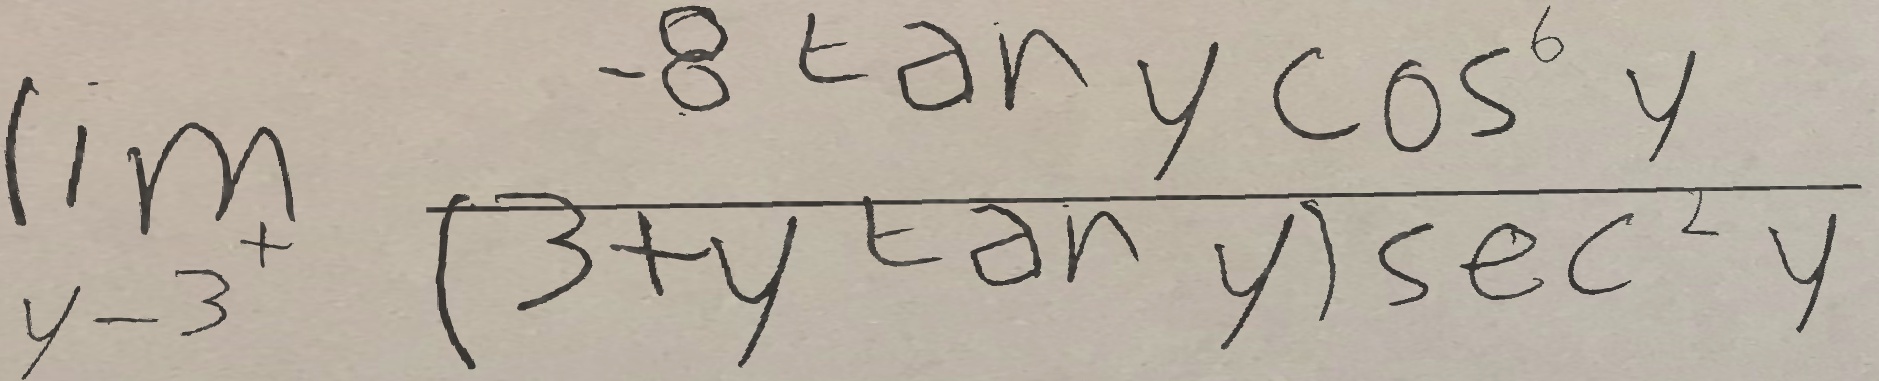 lim y-3^+ \frac{-8 tan y cos^6 y}{(3+y tan y) sec^2 y}